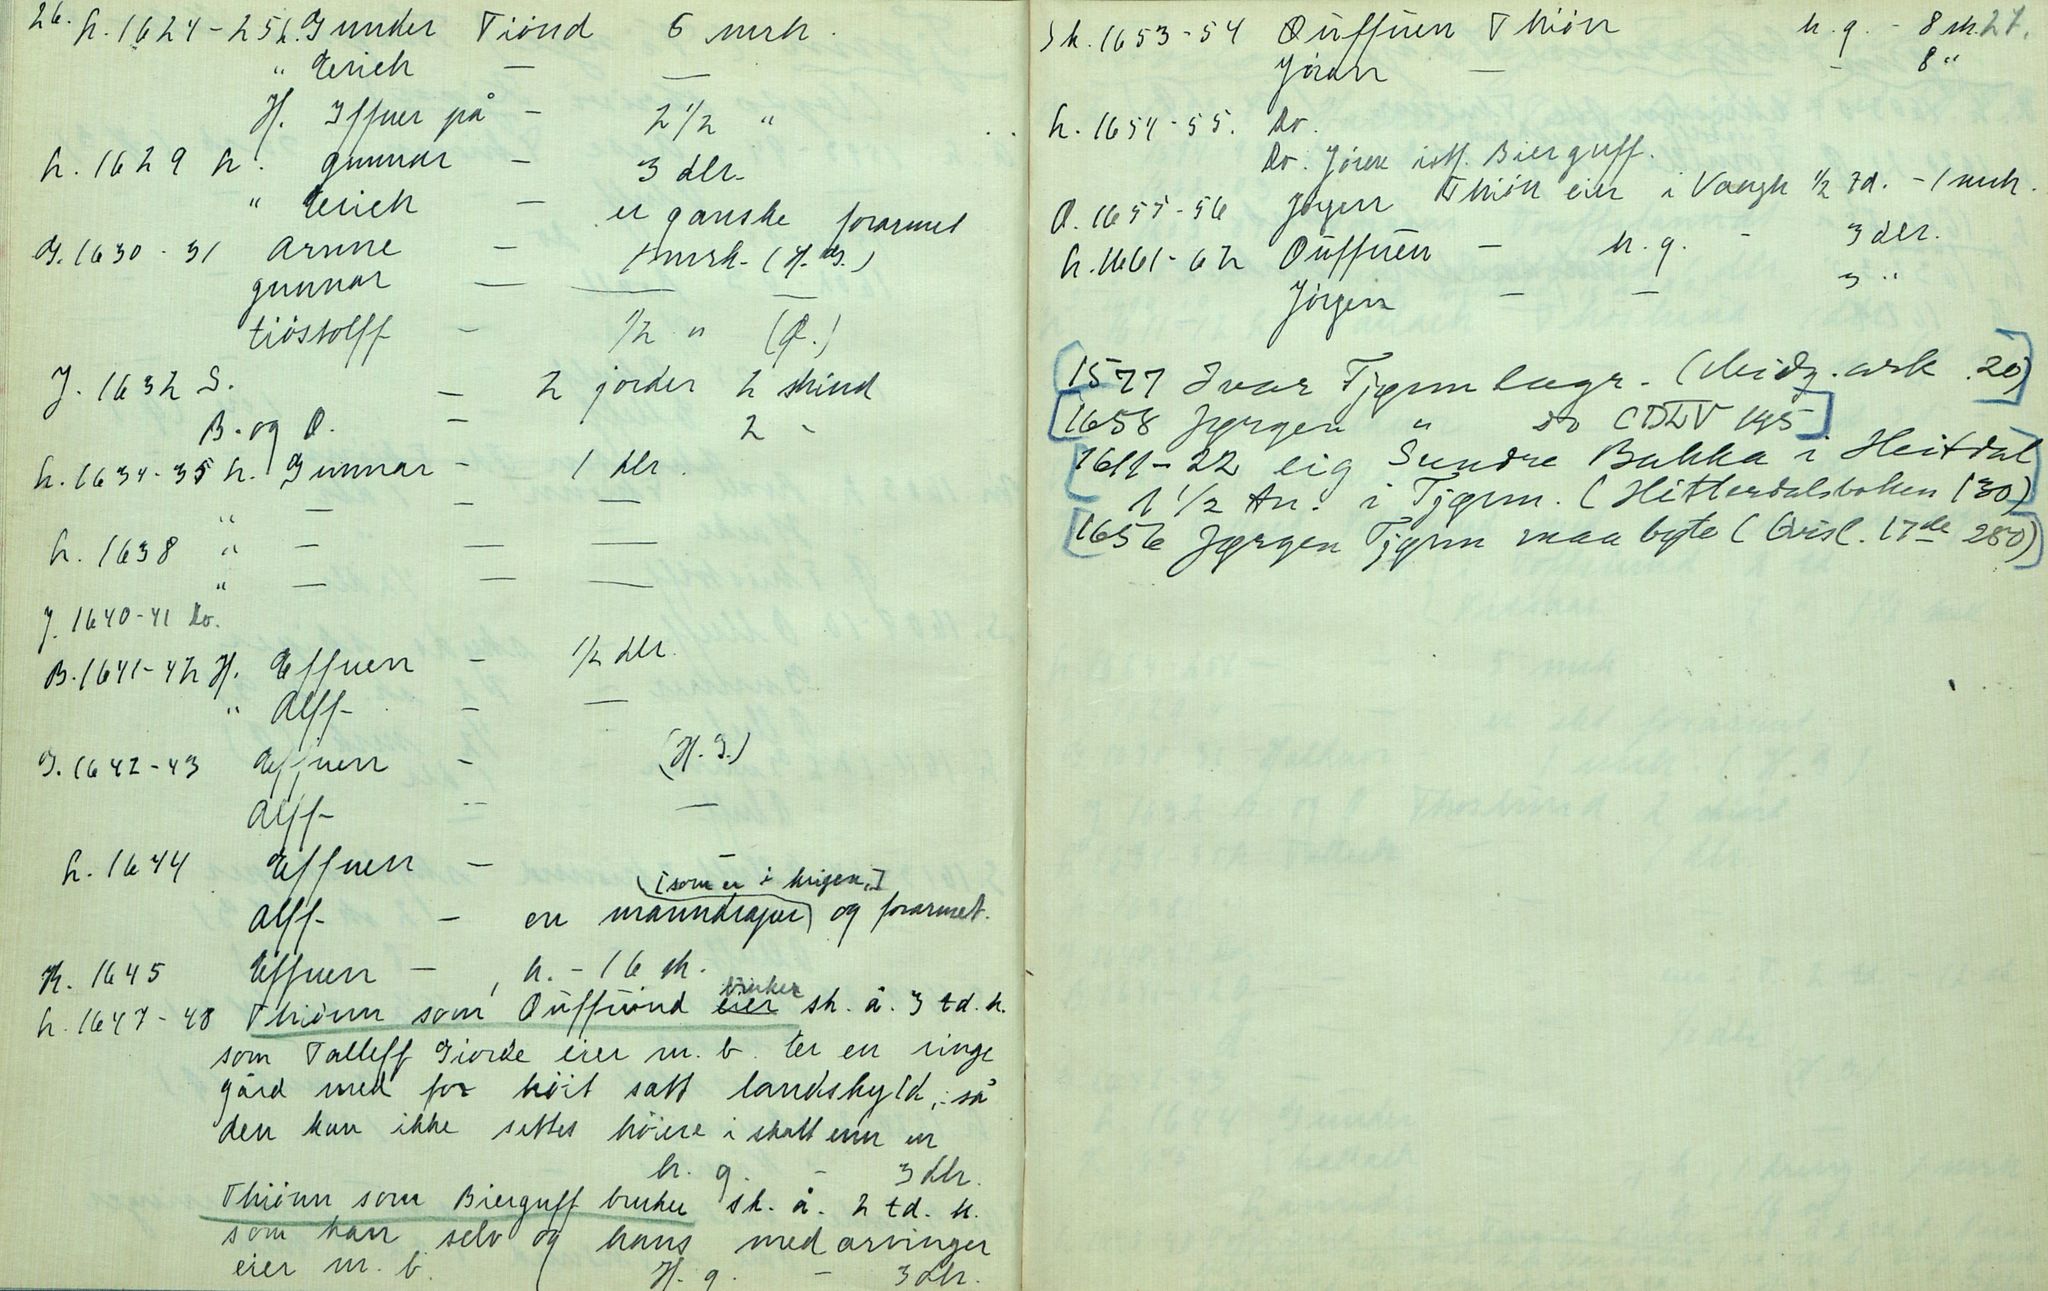 26. h. 1624-25 h. Gunder Tiönd 6 mrk.
" Erich — —
H. Iffuer på - 2 1/2 "
h. 1629 h. gunnar - 3 dlr.
" Erich - er ganske forarmet
G. 1630-31 Arnne - 1 mrk. (H. G.)
gunnar — — —
tiöstolff - 1/2 " (Q.)
J. 1632 S. - 2 jorder 2 skind
B. og Q. - 2 -
h. 1634-35 h. Gunnar - 1 dlr.
" — - —
h. 1638 " — — —
" — — —
J. 1640-41 Do.
B. 1641-42 H. Effuen - 1/2 dlr.
" Alff - - —
G. 1642-43 Effuen - (H. G.)
Alff - —
h. 1644 Effuen - —
[som er i krigen,]
Alff - en manndraper og forarmet.
K. 1645 Effuen —, h. - 16 sk.
bruker
h. 1647-48 Thiönn som Ouffuönd eier sk. å. 3 td. k.
som Talleff Giorde eier m. b. Er en ringe
gård med for höit satt landskyld, så
den kan ikke settes höiere i skatt enn en
h. g. - 3 dlr.
Thiönn som Bierguff bruker sk. å. 2 td. k.
som han selv og hans medarvinger
eier m. b. H. g. - 3 dlr.
Sk. 1653-54 Ouffuen Thiön h. g. - 8 sk. 27.
Jöran — - 8 "
h. 1654-55. Do.
Do. Jören istf. Bierguff.
Q. 1655-56 Jörgen Thiön eier i Vaagh 1/2 td. - 1 mrk.
h. 1661-62 Ouffuen - h. g. - 3 dlr.
Jörgen — — 3 "
[1577 Ivar Tjønn lagr. ( . ark .20)]
[1658 Jørgen " do CDLV 195]
[1611-22 eig Sundre Bakka i Heitdal
1 1/2 An. i Tjønn. (Hitterdalsboken 130)]
[1656 Jørgen Tjønn maa bøte (Kvisl. 17de 280)]